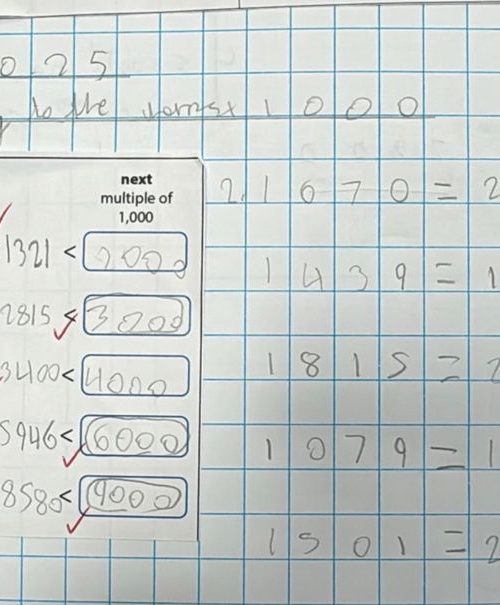 025
to the nornest 1000
next
multiple of
1,000
1321 < 2000
2815 < 3000
3400 < 4000
5946 < 6000
8580 < 9000
2. 1670 = 2
1439 = 1
1815 = 2
1079 = 1
1501 = 2